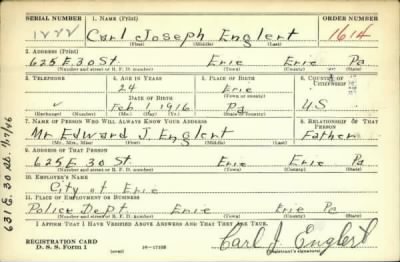 SERIAL NUMBER 1. NAME (Print) ORDER NUMBER
Carl Joseph Englert 1614
(First) (Middle) (Last)
2. ADDRESS (Print)
625 E. 30 St. Erie Erie Pa
(Number and street or R. F. D. number) (Town) (County) (State)
3. TELEPHONE 4. AGE IN YEARS 5. PLACE OF BIRTH 6. COUNTRY OF CITIZENSHIP
24 Erie
DATE OF BIRTH (Town or county)
Feb. 1, 1916 Pa U.S
(Exchange) (Number) (Mo.) (Day) (Yr.) (State or country)
7. NAME OF PERSON WHO WILL ALWAYS KNOW YOUR ADDRESS 8. RELATIONSHIP OF THAT PERSON
Mr Edward J. Englert Father
(Mr., Mrs., Miss) (First) (Middle) (Last)
9. ADDRESS OF THAT PERSON
625 E. 30 St. Erie Erie Pa
(Number and street or R. F. D. number) (Town) (County) (State)
10. EMPLOYER'S NAME
City of Erie
11. PLACE OF EMPLOYMENT OR BUSINESS
Police Dept. Erie Erie Pa
(Number and street or R. F. D. number) (Town) (County) (State)
I AFFIRM THAT I HAVE VERIFIED ABOVE ANSWERS AND THAT THEY ARE TRUE.
REGISTRATION CARD
D. S. S. Form 1 (over) 16—17105 Carl J. Englert
(Registrant's signature)
631 E. 30